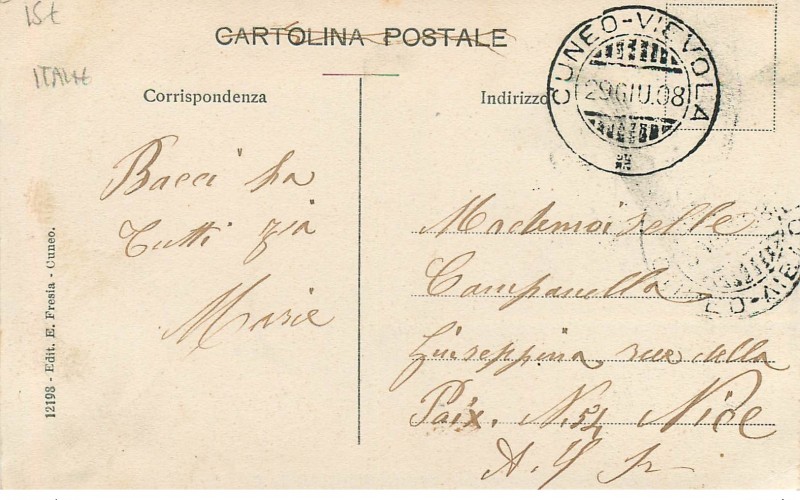 15t
ITALIE
CARTOLINA POSTALE
Corrispondenza
Indirizzo
CUNEO-VIEVOLA
29 GIU. 08
Bacci ha
Tutti zia
Marie
Mademoiselle
Campanella
Giuseppina rue della
Paix. N. Nice
A. M
12198 - Edit. E. Fresia - Cuneo.